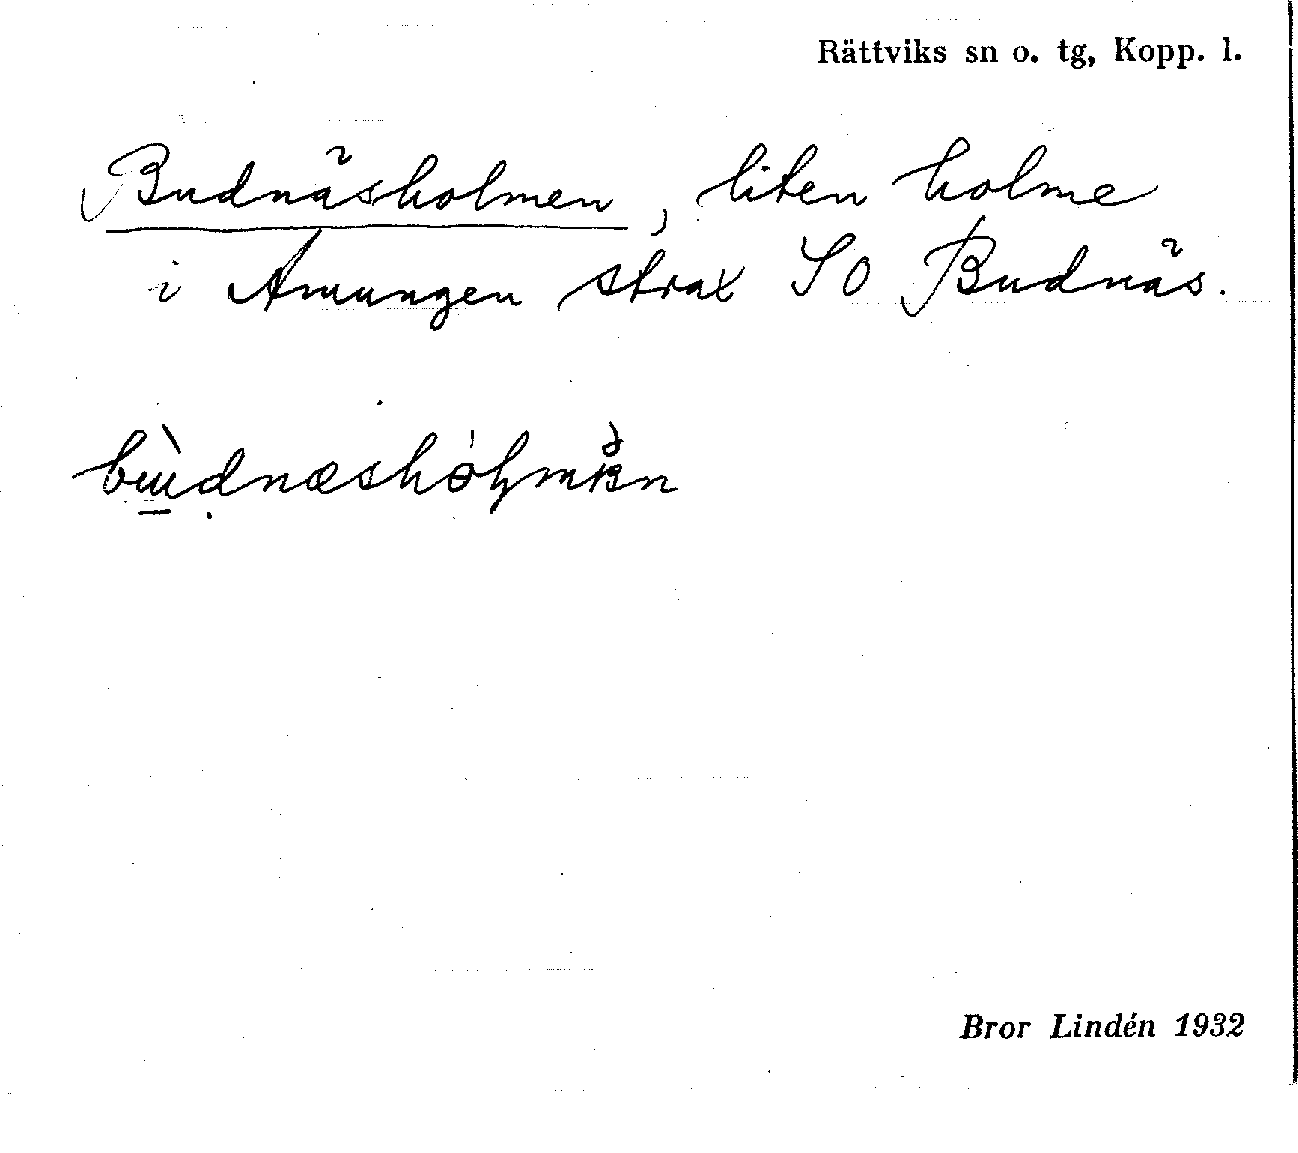 Rättviks sn o. tg, Kopp. l.
Budnäsholmen, liten holme
i Amungen strax SO Budnäs.
Bror Lindén 1932